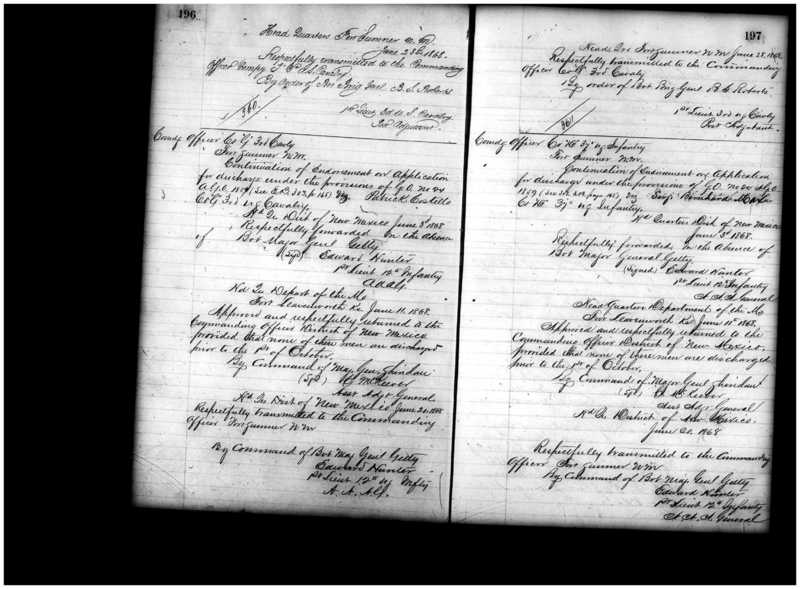 196
Head Quarters Fort Sumner N.M.
June 28th 1868.
Respectfully transmitted to the Commanding
Officer Compy "G" 3d U.S. Cavalry
By order of Bvt Brig Genl B. S. Roberts
1st Lieut 3d U.S. Cavalry
Post Adjutant
360
Comdg Officer Co "G" 3rd Cavly
Fort Sumner N.M.
Continuation of Endorsement on Application
for discharge under the provisions of G.O. No 24
A.G.O. 1859 (See E.B. page 165) Patrick Costello
Co G 3rd U.S. Cavalry.
Hd Qrs Dist of New Mexico June 3d 1868
Respectfully forwarded in the absence
of Bvt Major Genl Getty
(Sgd) Edward Hunter
1st Lieut 12th Infantry
A.A.A.G.
Hd Qrs Depart of the Mo
Fort Leavenworth Ks June 11. 1868.
Approved and respectfully returned to the
Commanding Officer District of New Mexico
provided that none of these men are discharged
prior to the 1st of October.
By Command of Maj Genl Sheridan
(Sgd) McKeever
Asst Adjt General
Hd Qrs Dist of New Mexico June 20. 1868
Respectfully transmitted to the Commanding
Officer Fort Sumner N.M.
By Command of Bvt Maj Genl Getty
Edward Hunter
1st Lieut 12th U.S. Infty
A.A.A.G.
197
Head Qrs Fort Sumner N.M. June 28, 1868.
Respectfully transmitted to the Commanding
Officer Co 3rd Cavalry
By order of Bvt Brig Genl B. S. Roberts
1st Lieut 3rd U.S. Cavly
Post Adjutant
361
Comdg Officer Co "H" 37th U.S. Infantry
Fort Sumner N.M.
Continuation of Endorsement on Application
for discharge under the provisions of G.O. No 24 A.G.O.
1859 (See page 165)
Co "H" 37th U.S. Infantry.
Hd Quarters Dist of New Mexico
June 3d 1868.
Respectfully forwarded in the absence of
Bvt Major General Getty
(Signed) Edward Hunter
1st Lieut 12th Infantry
A.A.A. General
Head Quarters Department of the Mo
Fort Leavenworth Ks June 11th 1868.
Approved and respectfully returned to the
Commanding Officer District of New Mexico
provided that none of these men are discharged
prior to the 1st of October.
By Command of Major Genl Sheridan
McKeever
Asst Adjt General
Hd Qrs District of New Mexico
June 20. 1868
Respectfully transmitted to the Commanding
Officer Fort Sumner N.M.
By Command of Bvt Maj Genl Getty
Edward Hunter
1st Lieut 12th Infantry
A.A.A. General